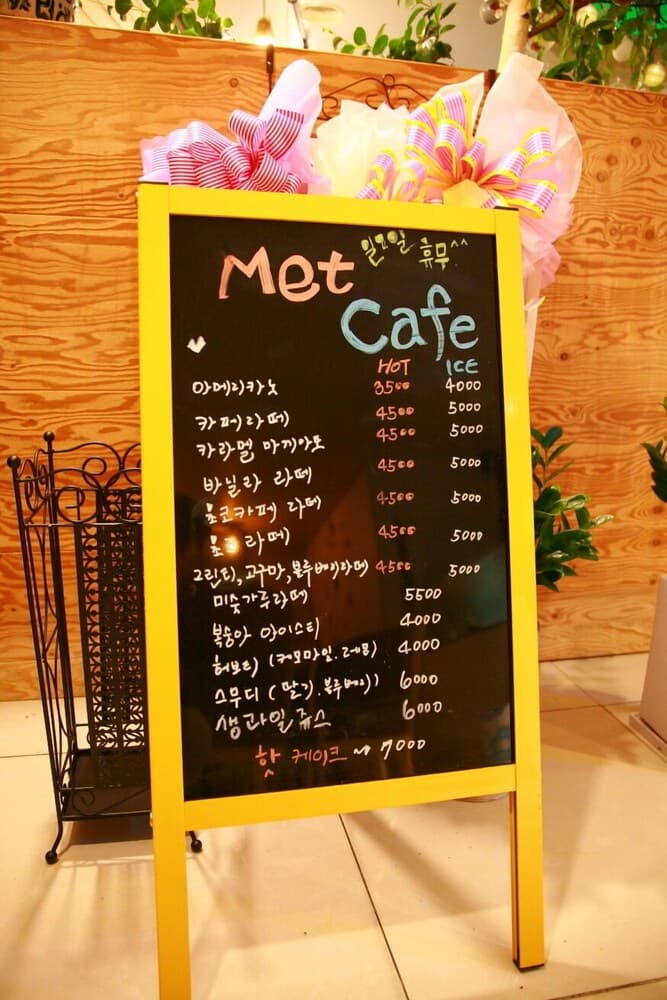 Met 일요일 휴무^^
Cafe
HOT ICE
아메리카노 3500 4000
카페라떼 4500 5000
카라멜 마끼아또 4500 5000
바닐라 라떼 4500 5000
초코카페 라떼 4500 5000
초코라떼 4500 5000
그린티, 고구마, 블루베리라떼 4500 5000
미숫가루라떼 5500
복숭아 아이스티 4000
허브티 (케모마일. 레몬) 4000
스무디 (딸기. 블루베리) 6000
생과일 쥬스 6000
핫 케이크 ~ 7000